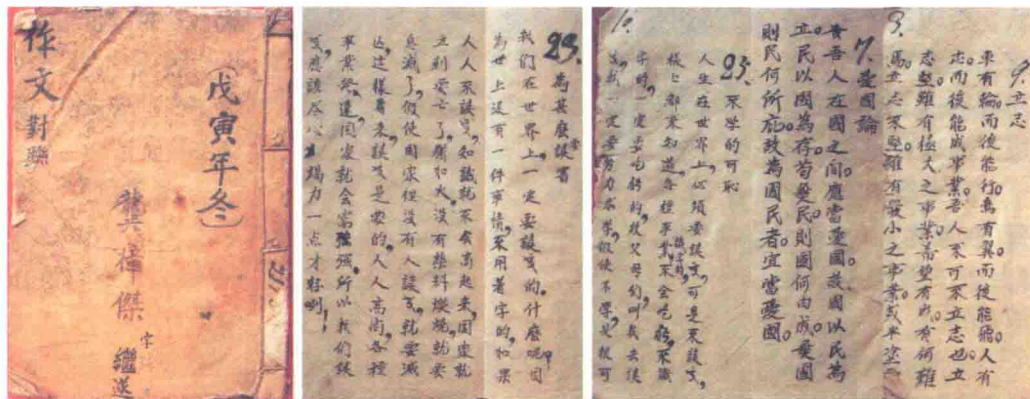 戊寅年冬
龔樟傑
字 繼送
作文對聯
23. 為甚麼要讀書
我們在世界上，一定要讀書的，什麼呢？因
為世上沒有一件事情，不用着字的，如果
人人不讀書，如識就不会高起來，國家就
立刻要亡了，猶如火沒有燃料燒就要
息滅了，假使國家但沒有人讀書，就要滅
亡，這樣看來讀書是要的，人人高尚，各種
事業發達國家就会富強，所以我們讀
書，應該尽心竭力一点才好咧！
9. 立志
車有輪而後能行鳥有翼而後能飛。人有
志而後能成事業。吾人不可不立志也。立
志堅雖有極大之事業希望有成有何難
8. 焉立志不堅雖有小之事業或半塗而
7. 愛國論
吾人在國之間應當愛國。國以民為
立。民以國為存。苟愛民則國何由成。愛國
則民何所庇。故為國民者宜當愛國。
25. 不學的可恥
人生在世界上，必須要讀書，可是不讀書，
樣々都不知道，各種事業不会吃虧，不識
字時，一定要吃虧的，故父母們叫我去讀
書，我一定要努力求學，假使不學是很可
10.